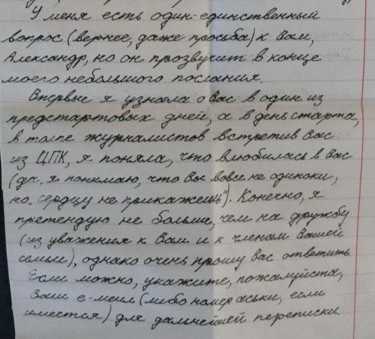 У меня есть один-единственный
вопрос (вернее, даже просьба) к Вам,
Александр, но он прозвучит в конце
моего небольшого послания.
Впервые я узнала о Вас в один из
предстартовых дней, а в день старта,
в толпе журналистов встретив Вас
из ЦПК, я поняла, что влюбилась в Вас
(да, я понимаю, что Вы вовсе не одиноки,
но "сердцу не прикажешь"). Конечно, я
претендую не больше, чем на дружбу
(из уважения к Вам и к членам Вашей
семьи), однако очень прошу Вас ответить.
Если можно, укажите, пожалуйста,
Ваш е-меил (либо номер аськи, если
имеется) для дальнейшей переписки